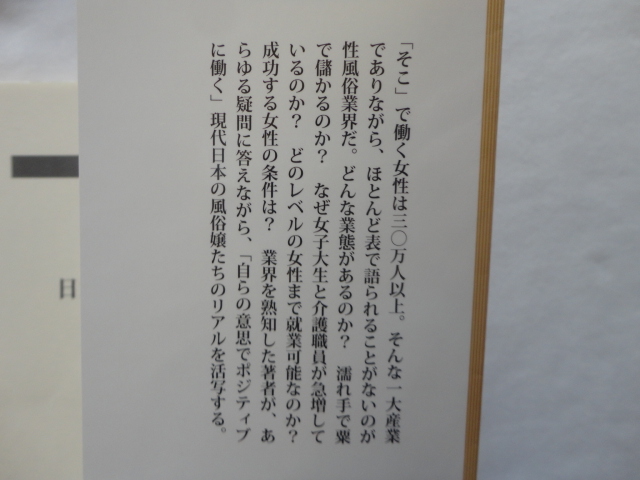 「そこ」で働く女性は三〇万人以上。そんな一大産業
でありながら、ほとんど表で語られることがないのが
性風俗業界だ。どんな業態があるのか？　濡れ手で粟
で儲かるのか？　なぜ女子大生と介護職員が急増して
いるのか？　どのレベルの女性まで就業可能なのか？
成功する女性の条件は？　業界を熟知した著者が、あ
らゆる疑問に答えながら、「自らの意思でポジティブ
に働く」現代日本の風俗嬢たちのリアルを活写する。
日